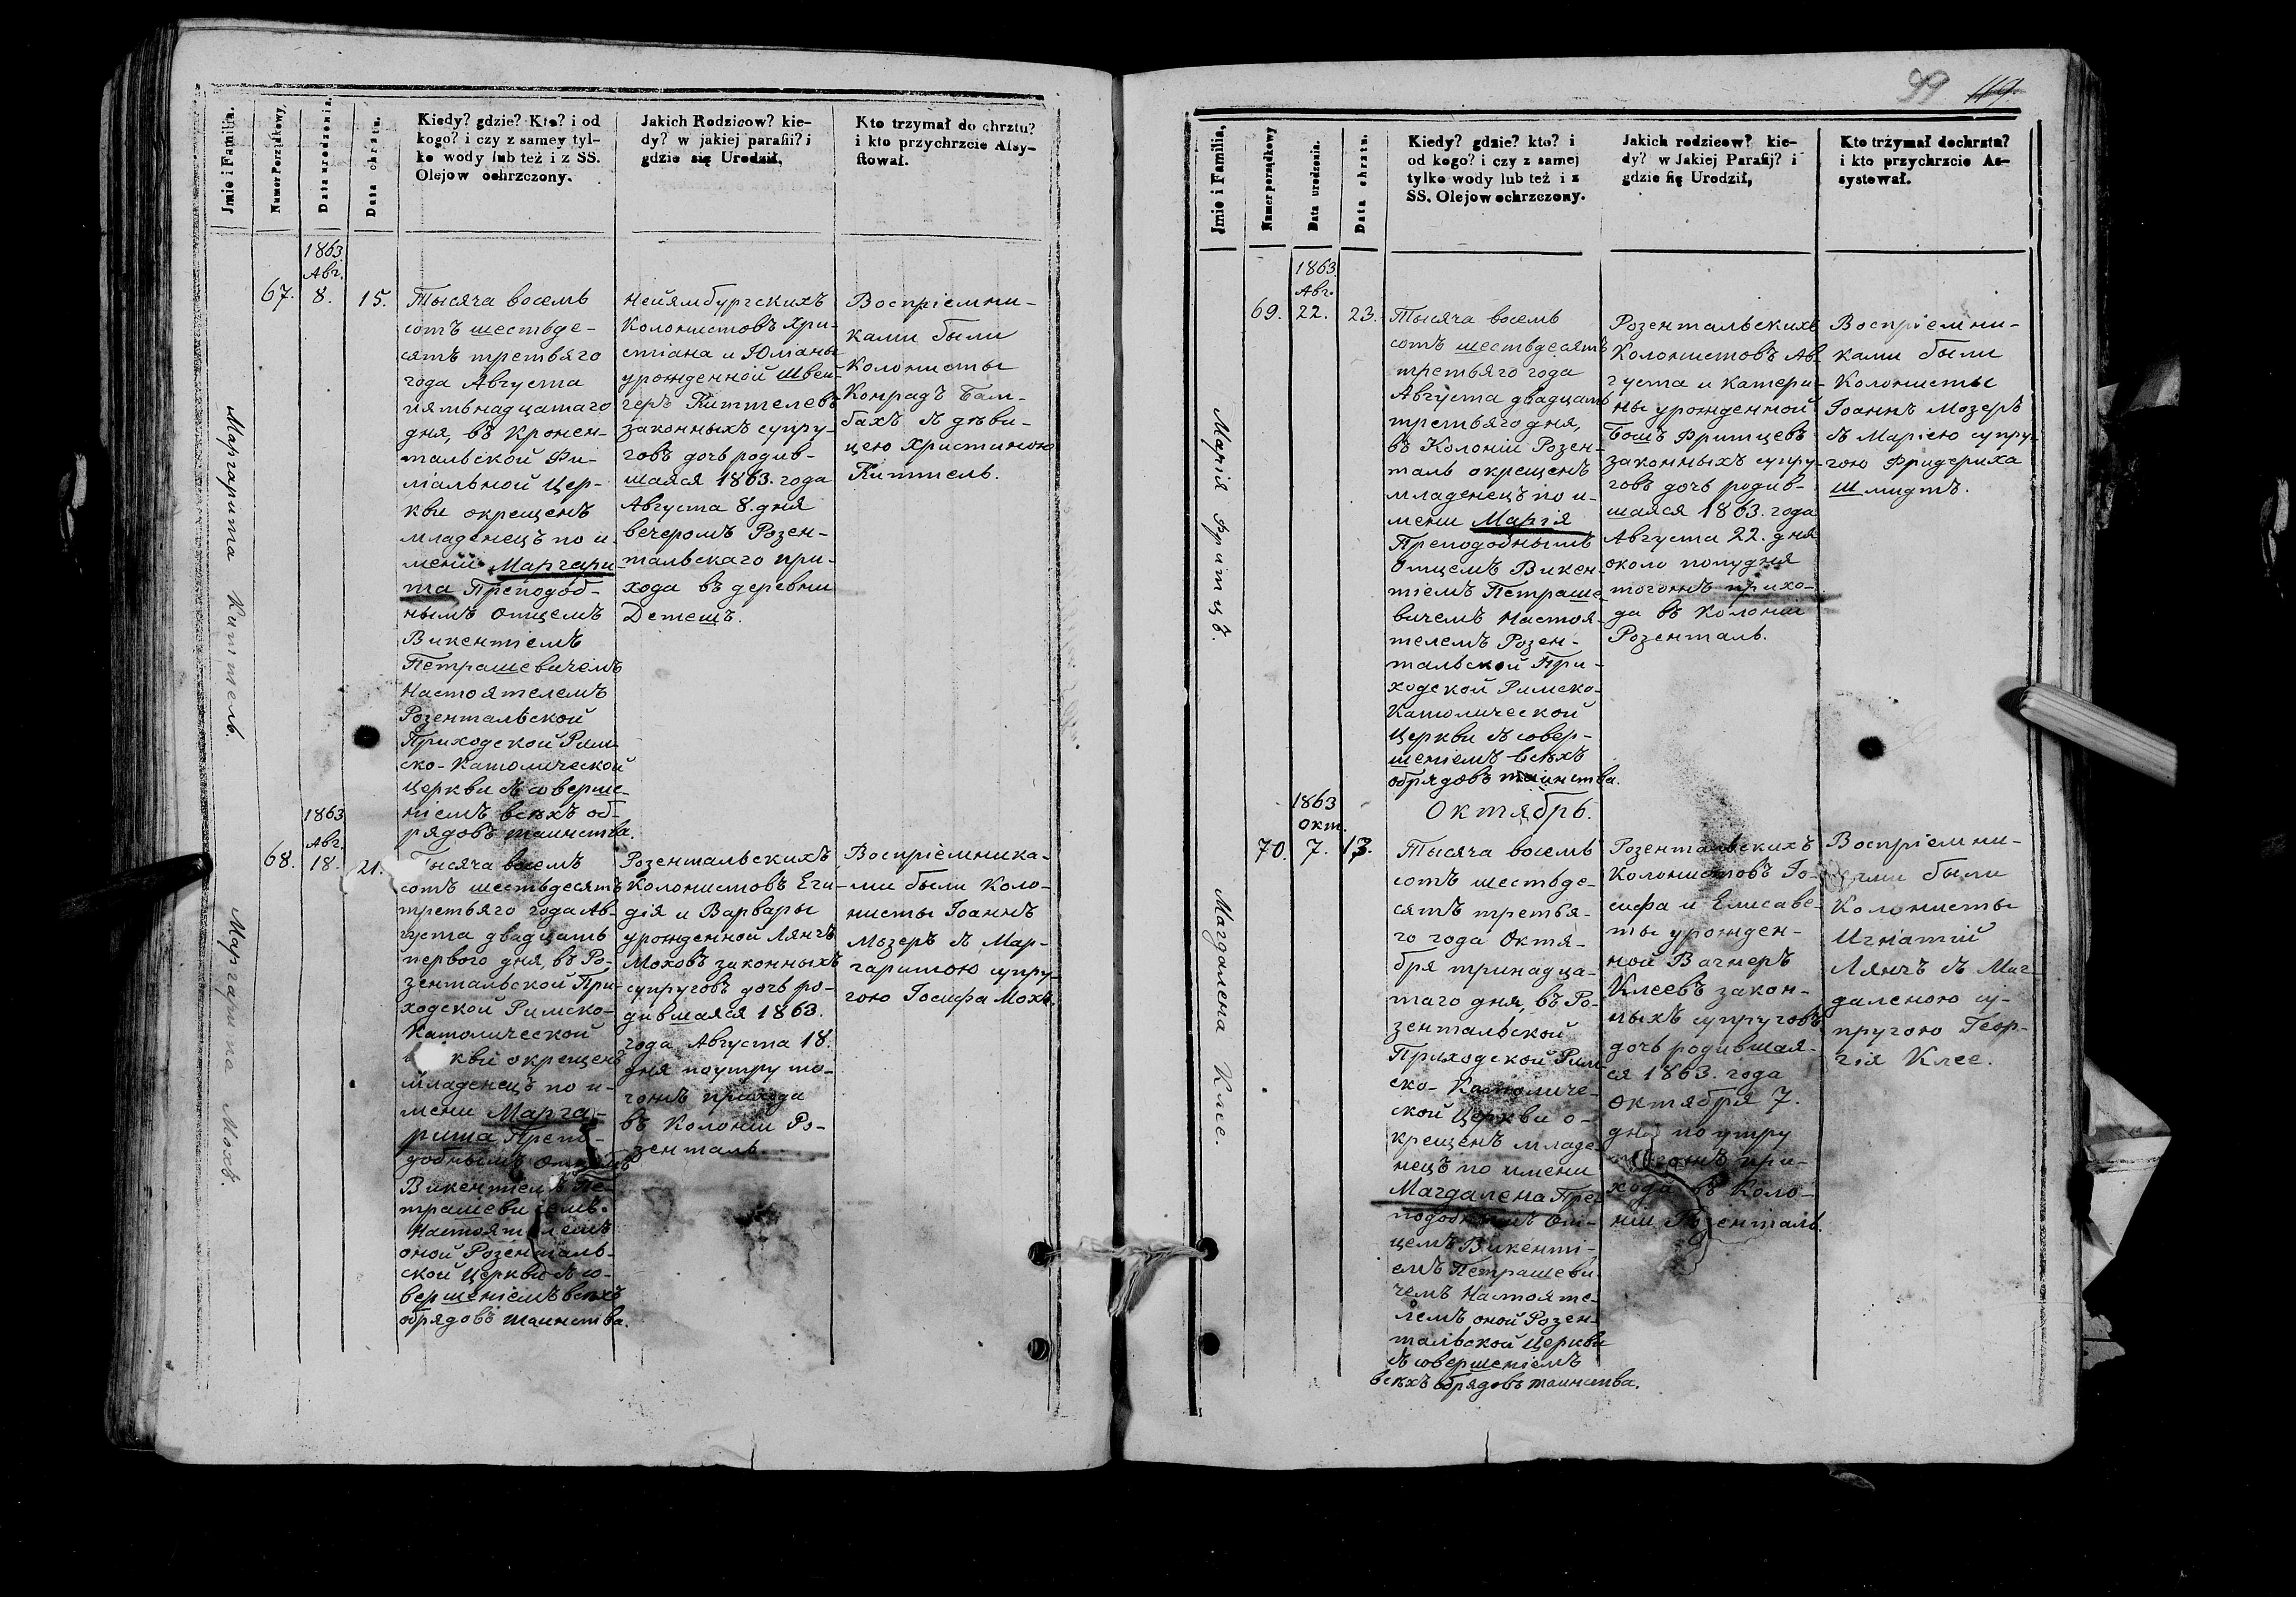 Jmie i Familia.
Numer Porządkowy.
Data urodzenia.
Data chrztu.
Kiedy? gdzie? Kto? i od
kogo? i czy z samey tyl-
ko wody lub też i z SS.
Olejow ochrzczony.
Jakich Rodzicow? kie-
dy? w jakiej parafii? i
gdzie się Urodził,
Kto trzymał do chrztu?
i kto przychrzcie Assy-
stował.
Маргарита Киттель.
67.
1863.
Авг.
8.
15.
Тысяча восемь
сотъ шестьде-
сятъ третьяго
года Августа
пятьнадцатаго
дня, въ Кронен-
тальской Фи-
мальной Цер-
кви окрещенъ
младенецъ по и-
мени Маргари-
та Преподоб-
нымъ Отцемъ
Викентіемъ
Петрашевичемъ
Настоятелемъ
Розентальской
Приходской Рим-
ско-Католической
Церкви съ соверше-
ніемъ всѣхъ об-
рядовъ таинства.
Нейямбургскихъ
Колонистовъ Хри-
стіана и Юліаны
урожденной Швей-
геръ Киттелевъ
законныхъ супру-
говъ дочь родив-
шаяся 1863. года
Августа 8. дня
вечеромъ Розен-
тальскаго при-
хода въ деревни
Детешъ.
Воспріемни-
ками были
Колонисты
Конрадъ Бам-
бахъ съ дѣви-
цею Христиною
Киттель.
Маргарита Мохъ.
68.
1863
Авг.
18.
21.
Тысяча восемь
сотъ шестьдесятъ
третьяго года Ав-
густа двадцать
первого дня, въ Ро-
зентальской При-
ходской Римско-
Католической
кви окрещенъ
младенецъ по и-
мени Марга-
рита Препо-
добнымъ Отцемъ
Викентіемъ Пе-
трашевичемъ
Настоятелемъ
оной Розенталь-
ской Церкви съ со-
вершеніемъ всѣхъ
обрядовъ таинства.
Розентальскихъ
Колонистовъ Еги-
дія и Варвары
урожденной Лянгъ
Моховъ законныхъ
супруговъ дочь ро-
дившаяся 1863.
года Августа 18.
дня поутру то-
гожъ прихода
въ Колоніи Ро-
зенталь.
Воспріемника-
ми были Коло-
нисты Іоаннъ
Мозеръ съ Мар-
гаритою супру-
гою Іосифа Мохъ.
99 119
Jmie i Familia,
Numer porządkowy
Data urodzenia.
Data chrztu.
Kiedy? gdzie? kto? i
od kogo? i czy z samej
tylko wody lub też i z
SS. Olejow ochrzczony.
Jakich rodzicow? kie-
dy? w Jakiej Parafij? i
gdzie się Urodził,
Kto trżymał dochrzta?
i kto przychrzcie As-
systował.
Марія Фритцъ.
69.
1863.
Авг.
22.
23.
Тысяча восемь
сотъ шестьдесятъ
третьяго года
Августа двадцать
третьяго дня,
въ Колоніи Розен-
таль окрещенъ
младенецъ по и-
мени Марія
Преподобнымъ
Отцемъ Викен-
тіемъ Петраше-
вичемъ Настоя-
телемъ Розен-
тальской При-
ходской Римско-
Католической
Церкви съ совер-
шеніемъ всѣхъ
обрядовъ таинства.
Розентальскихъ
Колонистовъ Ав-
густа и Катери-
ны урожденной
Бошъ Фритцевъ
законныхъ супру-
говъ дочь родив-
шаяся 1863. года
Августа 22. дня
около полудня
тогожъ прихо-
да въ Колоніи
Розенталь.
Воспріемни-
ками были
Колонисты
Іоаннъ Мозеръ
съ Маріею супру-
гою Фридериха
Шмидтъ.
Октябрь.
Магдалена Клее.
70.
1863
Окт.
7.
13.
Тысяча восемь
сотъ шестьде-
сятъ третья-
го года Октя-
бря тринадца-
таго дня, въ Ро-
зентальской
Приходской Рим-
ско-Католиче-
ской Церкви о-
крещенъ младе-
нецъ по имени
Магдалена Пре-
подобнымъ От-
цемъ Викенті-
емъ Петрашеви-
чемъ Настояте-
лемъ оной Розен-
тальской Церкви
съ совершеніемъ
всѣхъ обрядовъ таинства.
Розентальскихъ
Колонистовъ Іо-
сифа и Елисаве-
ты урожден-
ной Вагнеръ
Клеевъ закон-
ныхъ супруговъ
дочь родившая-
ся 1863. года
Октября 7.
дня поутру
тогожъ при-
хода въ Коло-
ніи Розенталь.
Воспріемни-
ками были
Колонисты
Игнатій
Лянгъ съ Маг-
даленою су-
пругою Геор-
гія Клее.